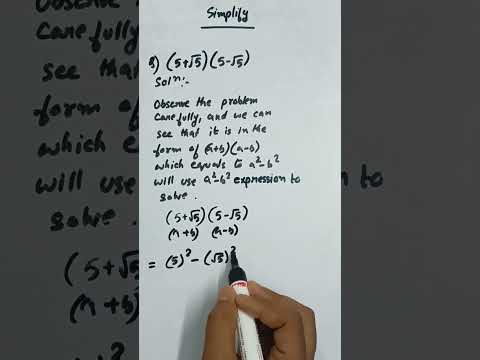 Simplify
8) (5+√5)(5-√5)
Solⁿ:-
Observe the problem
carefully, and we can
see that it is in the
form of (a+b)(a-b)
which equals to a²-b²
will use a²-b² expression to
solve.
(5+√5)(5-√5)
(a+b) (a-b)
= (5)² - (√5)²